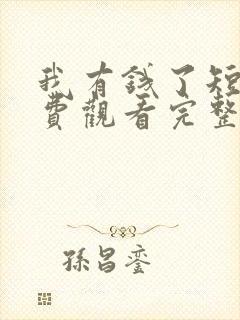 我有錢了短
費觀看完整
孫昌鑾